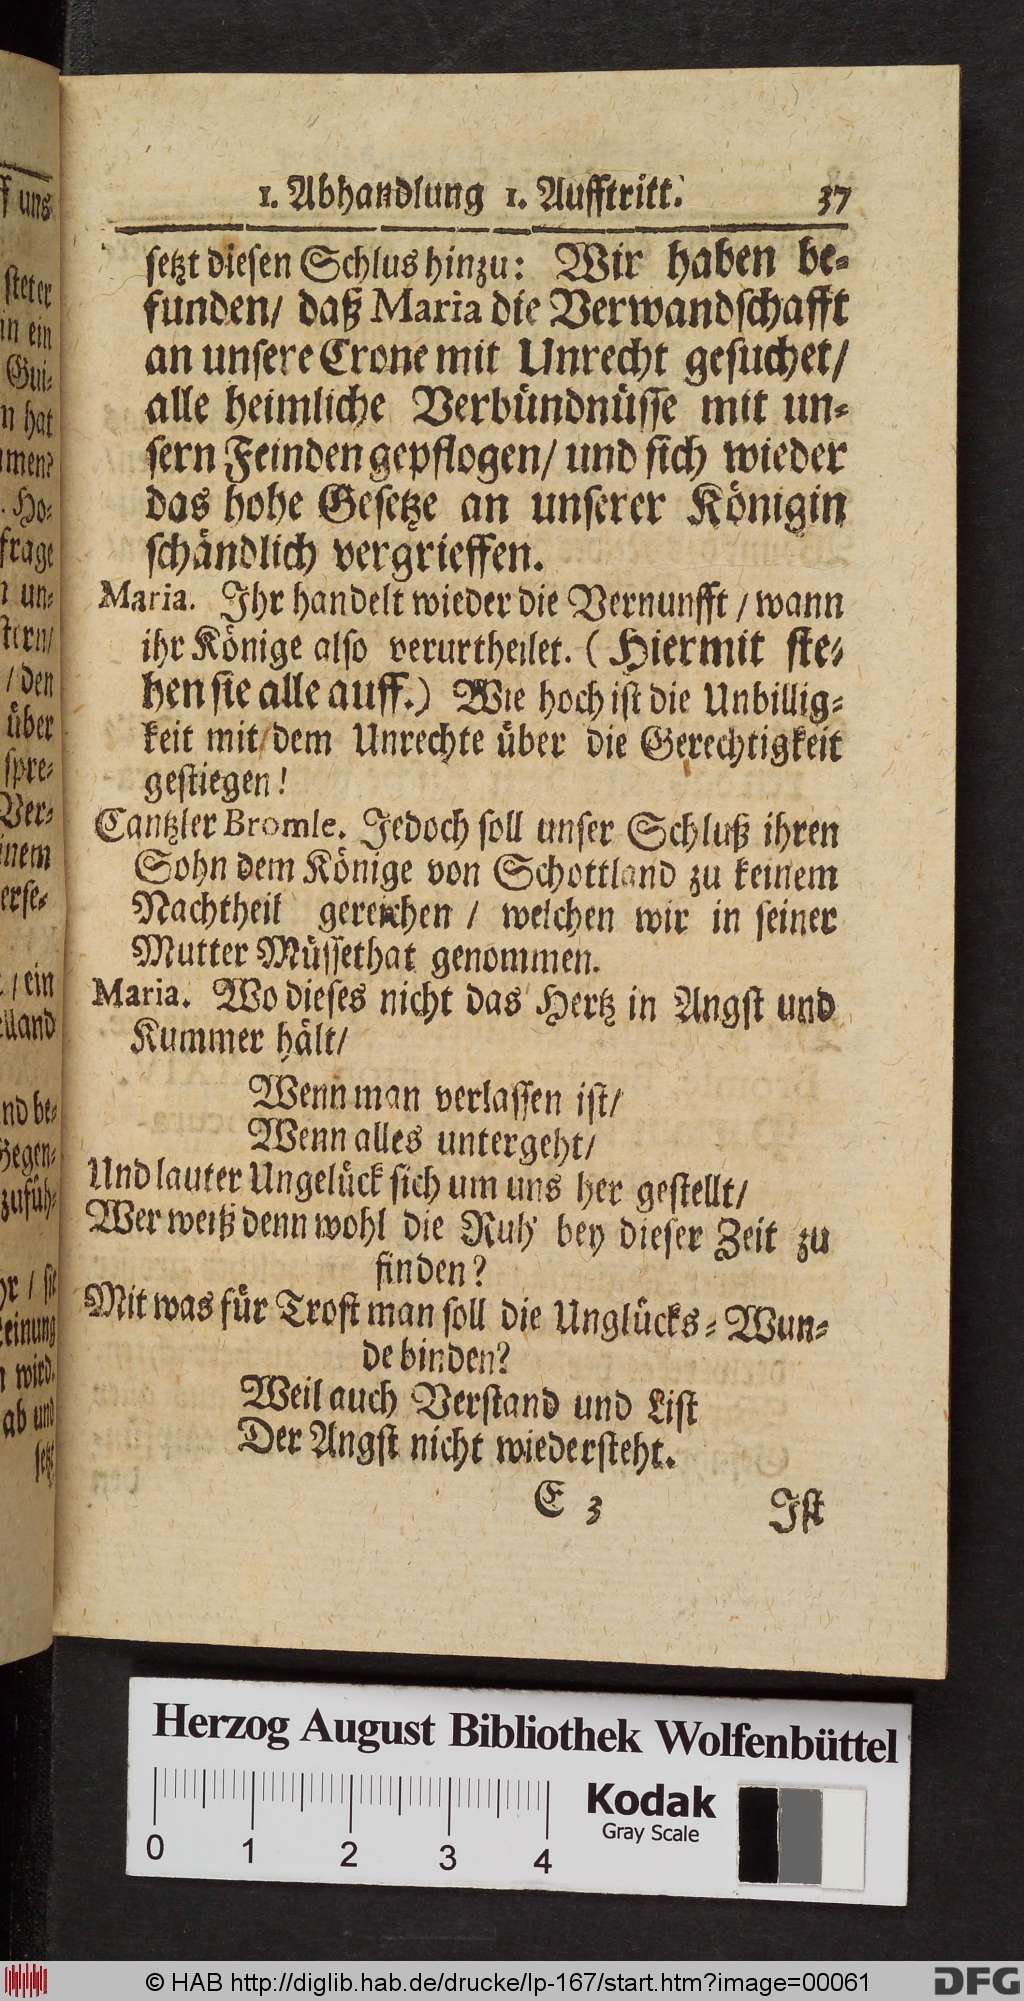 1. Abhandlung 1. Aufftritt. 37
setzt diesen Schlus hinzu: Wir haben be-
funden/ daß Maria die Verwandschafft
an unsere Crone mit Unrecht gesuchet/
alle heimliche Verbündnüsse mit un-
sern Feinden gepflogen/ und sich wieder
das hohe Gesetze an unserer Königin
schändlich vergrieffen.
Maria. Ihr handelt wieder die Vernunfft / wann
ihr Könige also verurtheilet. ( Hiermit ste-
hen sie alle auff.) Wie hoch ist die Unbillig-
keit mit dem Unrechte über die Gerechtigkeit
gestiegen!
Cantzler Bromle. Jedoch soll unser Schluß ihren
Sohn dem Könige von Schottland zu keinem
Nachtheil gereichen / welchen wir in seiner
Mutter Müssethat genommen.
Maria. Wo dieses nicht das Hertz in Angst und
Kummer hält/
Wenn man verlassen ist/
Wenn alles untergeht/
Und lauter Ungelück sich um uns her gestellt/
Wer weiß denn wohl die Ruh' bey dieser Zeit zu
finden?
Mit was für Trost man soll die Unglücks-Wun-
de binden?
Weil auch Verstand und List
Der Angst nicht wiedersteht.
E 3 Ist
f uns
steter
in ein
Gui-
n hat
men?
. Ho-
frage
n un-
stern/
/ den
über
spre-
Ver-
inem
erse-
/ ein
elland
nd be-
Gegen-
zufüh-
hr / sie
einung
n wird.
ab und
setzt
Herzog August Bibliothek Wolfenbüttel
Kodak
Gray Scale
0 1 2 3 4
© HAB http://diglib.hab.de/drucke/lp-167/start.htm?image=00061
DFG